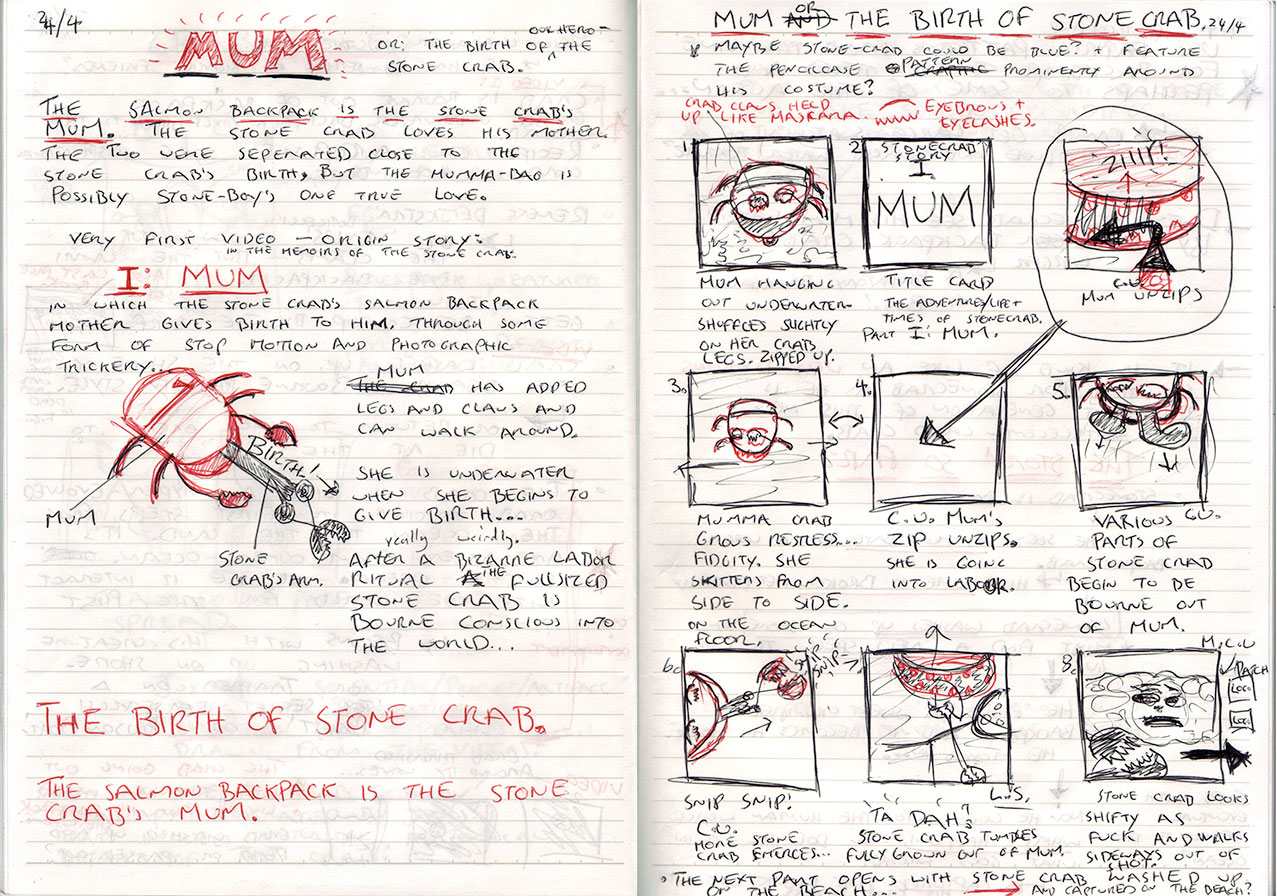 24/4
MUM
OR; THE BIRTH OF OUR HERO - THE
STONE CRAB.
THE SALMON BACKPACK IS THE STONE CRAB'S
MUM. THE STONE CRAB LOVES HIS MOTHER.
THE TWO WERE SEPERATED CLOSE TO THE
STONE CRAB'S BIRTH, BUT THE MUMMA-BAG IS
POSSIBLY STONE-BOY'S ONE TRUE LOVE.
VERY FIRST VIDEO - ORIGIN STORY:
IN THE MEMOIRS OF THE STONE CRAB.
I: MUM
IN WHICH THE STONE CRAB'S SALMON BACKPACK
MOTHER GIVES BIRTH TO HIM, THROUGH SOME
FORM OF STOP MOTION AND PHOTOGRAPHIC
TRICKERY...
MUM
THE CRAB HAS ADDED
LEGS AND CLAWS AND
CAN WALK AROUND.
BIRTH!
SHE IS UNDERWATER
WHEN SHE BEGINS TO
GIVE BIRTH...
really weirdly.
AFTER A BIZARRE LABOR
RITUAL A THE FULLSIZED
STONE CRAB IS
BOURNE CONSCIOUS INTO
THE WORLD...
MUM
STONE
CRAB'S ARM.
THE BIRTH OF STONE CRAB.
THE SALMON BACKPACK IS THE STONE
CRAB'S MUM.
MUM OR AND THE BIRTH OF STONE CRAB. 24/4
MAYBE STONE-CRAB COULD BE BLUE? + FEATURE
THE PENCILCASE PATTERN GRAPHIC PROMINENTLY AROUND
HIS COSTUME?
CRAB CLAWS HELD
UP LIKE MASKARA.
EYEBROWS +
EYELASHES.
1.
2.
STONECRAB
STORY
I.
MUM
ZIIIP!
C.U.
MUM UNZIPS
MUM HANGING
OUT UNDERWATER.
SHUFFLES SLIGHTLY
ON HER CRAB
LEGS. ZIPPED UP.
TITLE CARD
THE ADVENTURES/LIFE +
TIMES OF STONECRAB.
PART I: MUM.
3.
4.
5.
MUMMA CRAB
GROWS RESTLESS...
FIDGITY. SHE
SKITTERS FROM
SIDE TO SIDE.
ON THE OCEAN
FLOOR.
C.U. MUM'S
ZIP UNZIPS.
SHE IS GOING
INTO LABOUR.
C.U.
VARIOUS
PARTS OF
STONE CRAB
BEGIN TO BE
BOURNE OUT
OF MUM.
6.
SNIP
SNIP
7
8.
M.C.U
PATCH
LOGO
LOGO
SNIP SNIP!
C.U.
MORE STONE
CRAB EMERGES...
L.S.
TA DAH!
STONE CRAB TUMBLES
FULLY GROWN OUT OF MUM.
STONE CRAB LOOKS
SHIFTY AS
FUCK AND WALKS
SIDEWAYS OUT OF
SHOT.
THE NEXT PART OPENS WITH STONE CRAB WASHED UP
ON THE BEACH... AND CAPTURED ON THE BEACH?